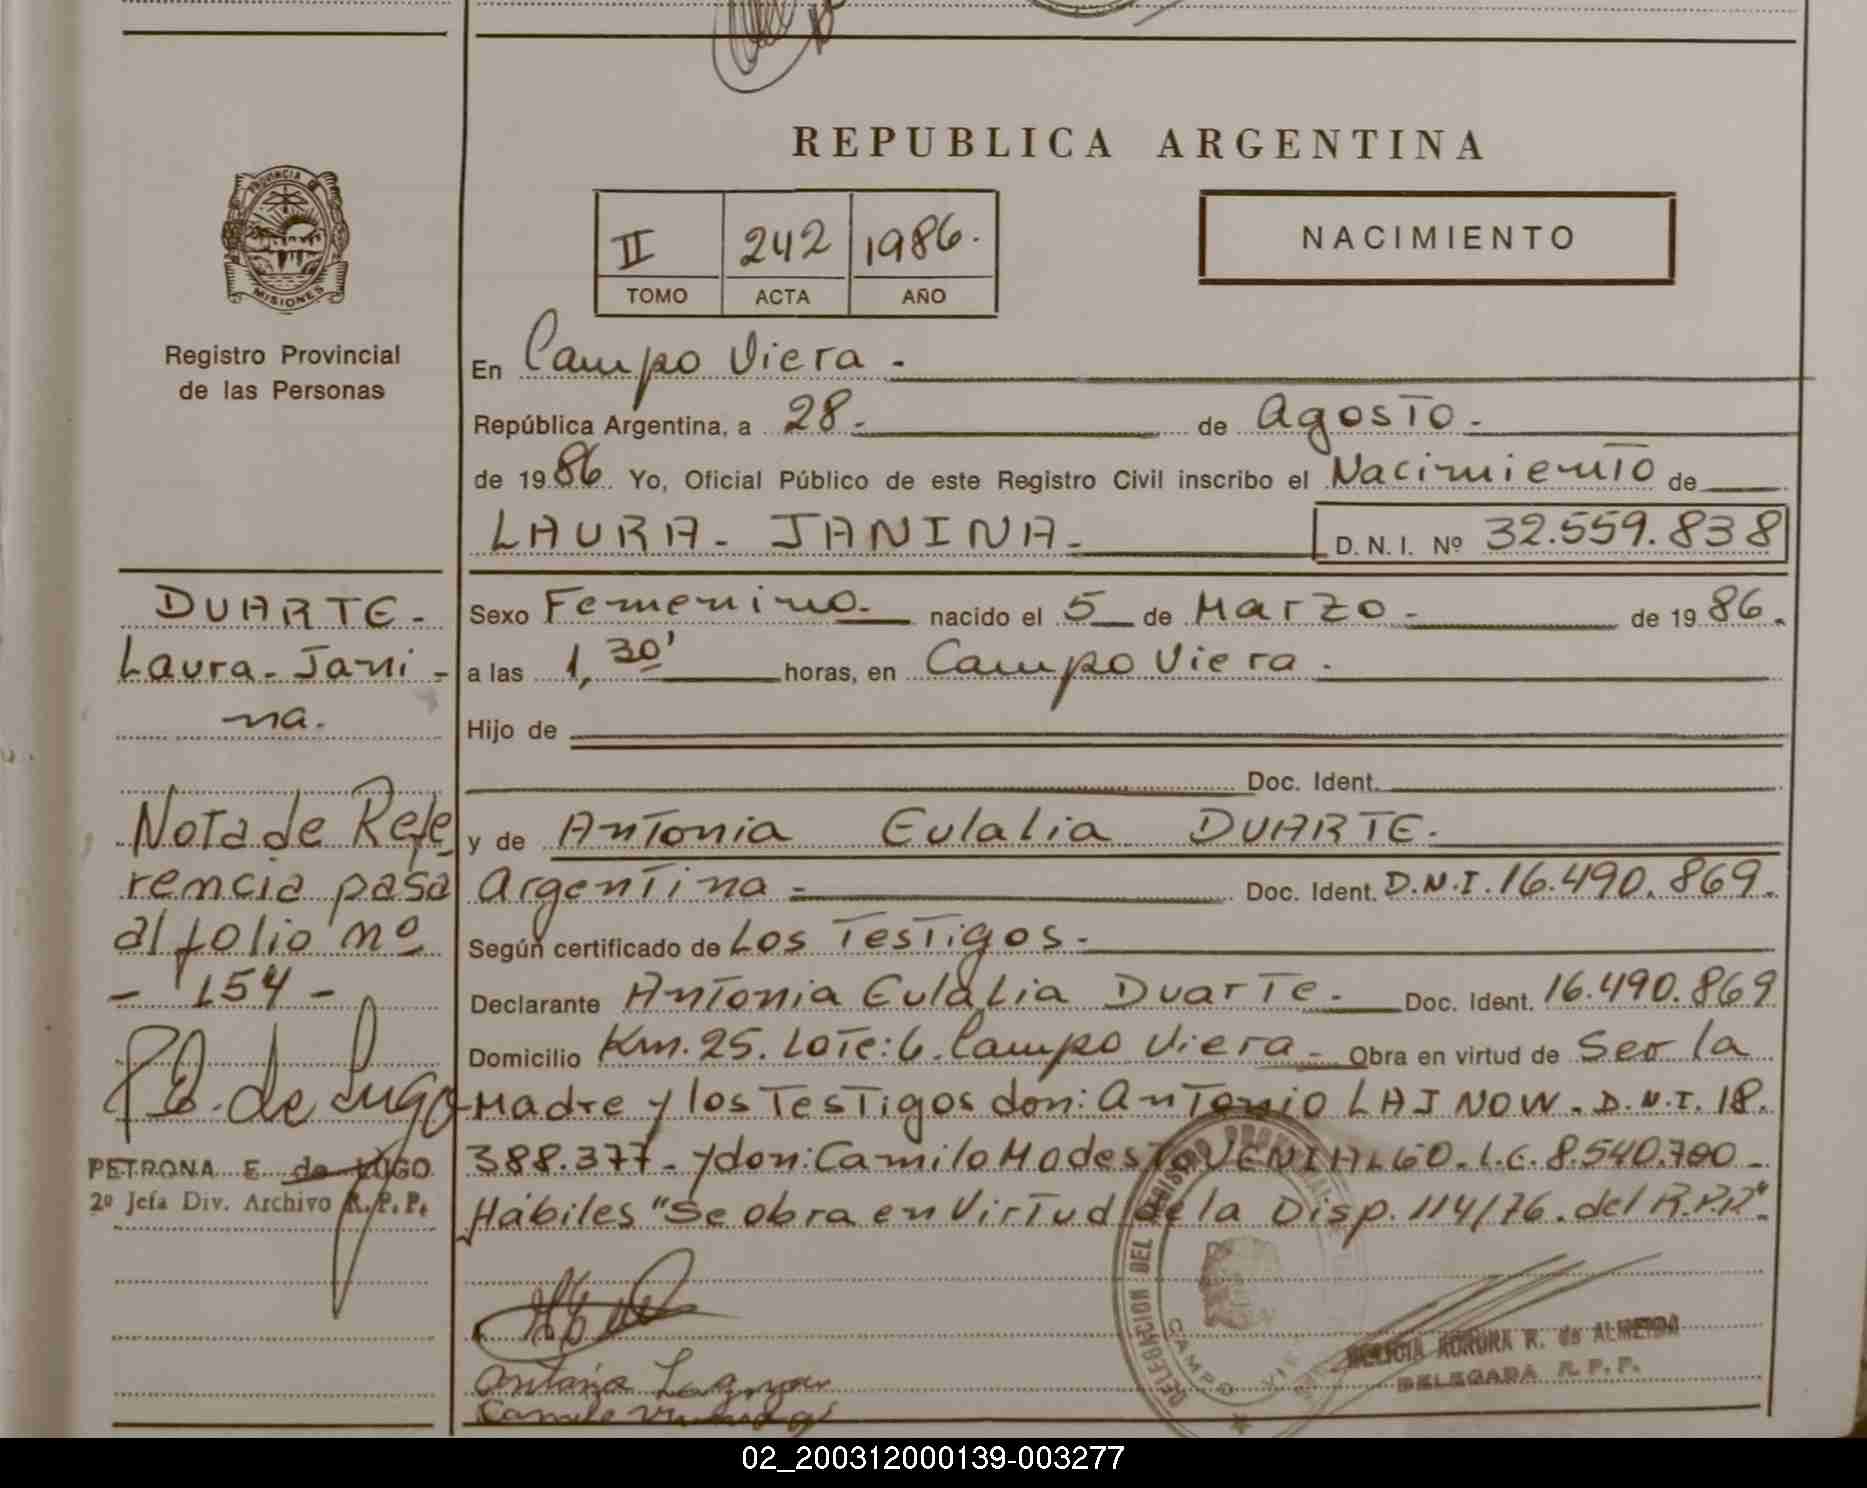 REPUBLICA ARGENTINA
PROVINCIA DE
MISIONES
Registro Provincial
de las Personas
II 242 1986.
TOMO ACTA AÑO
NACIMIENTO
En Campo Viera.
República Argentina, a 28. de Agosto.
de 1986. Yo, Oficial Público de este Registro Civil inscribo el Nacimiento de
LAURA JANINA. D. N. I. Nº 32.559.838
DUARTE.
Laura Jani-
na.
Nota de Refe
rencia pasa
al folio nº
- 154 -
P.E. de Lugo
PETRONA E. de LUGO
2º Jefa Div. Archivo R. P. P.
Sexo Femenino. nacido el 5 de Marzo. de 1986.
a las 1,30' horas, en Campo Viera.
Hijo de
Doc. Ident.
y de Antonia Eulalia DUARTE.
Argentina Doc. Ident. D.N.I. 16.490.869.
Según certificado de Los Testigos.
Declarante Antonia Eulalia Duarte. Doc. Ident. 16.490.869
Domicilio Km. 25. Lote: 6. Campo Viera Obra en virtud de Ser la
Madre y los Testigos don: Antonio LAJNOW. D.N.I. 18.
388.377 y don: Camilo Modesto VENIALGO. L.E. 8.540.700
Hábiles "Se obra en Virtud de la Disp. 114/76. del R.P.P."
DELEGACION DEL REGISTRO PROVINCIAL
CAMPO VIE
AURORA R. de ALMEIDA
DELEGADA R. P. P.
02_200312000139-003277